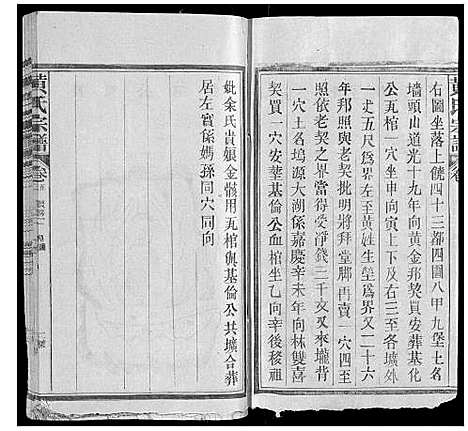 黃氏宗譜
卷
右圖坐落上饒四十三都四圖八甲九堡七名
墻頭山道光十九年向黃金邦契買安葬基化
公瓦棺一穴坐申向寅上下及右三至各壙外
一丈五尺爲界左至黃姓生塋爲界又一十六
年邦照與老契批明將拜堂脚再賣一穴四至
照依老契之界當得受淨錢二千文又來壠背
一穴土名塢源大湖係嘉慶辛未年向林雙喜
契買一穴安葬基倫公血棺坐乙向辛後移祖
妣余氏貴娘金骸用瓦棺與基倫公共壙合葬
居左賓係媽孫同穴同向
黃氏宗譜
卷